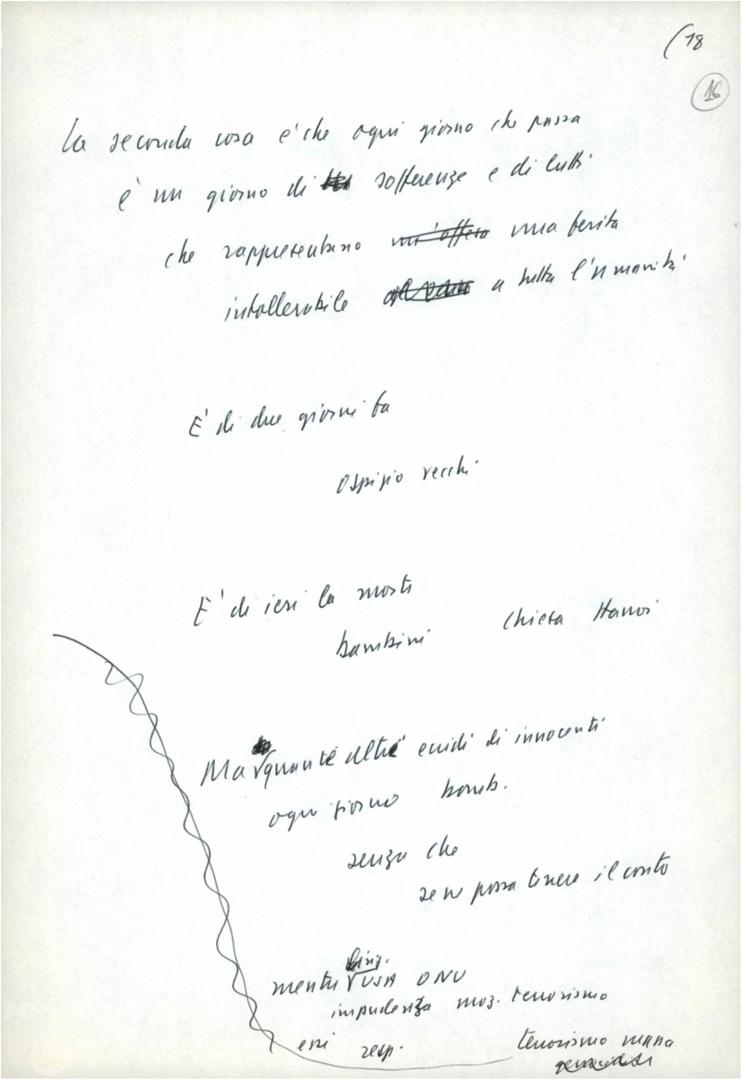 (18
16
La seconda cosa e' che ogni giorno che passa
è un giorno di sofferenze e di lutti
che rappresentano un'offesa una ferita
intollerabile a tutta l'umanità
E' di due giorni fa
ospizio vecchi
E' di ieri la morte
bambini chiesa Hanoi
Ma quanti altri eccidi di innocenti
ogni giorno bomb.
senza che
se ne possa tenere il conto
mentre USA ONU
impudenza moz. terrorismo
essi resp.
terrorismo massa